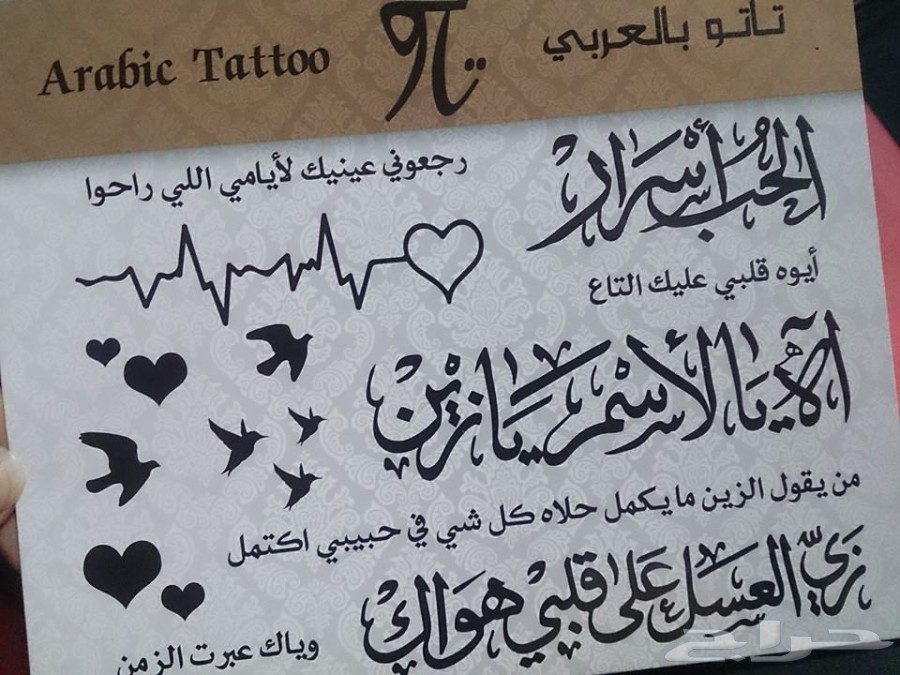 تاتو بالعربي
Arabic Tattoo
الحُب أسرار
رجعوني عينيك لأيامي اللي راحوا
أيوه قلبي عليك التاع
آلآه يا لأسمر يا زين
من يقول الزين ما يكمل حلاه كل شي في حبيبي اكتمل
زيّ العسل على قلبي هواك
وياك عبرت الزمن
حراج